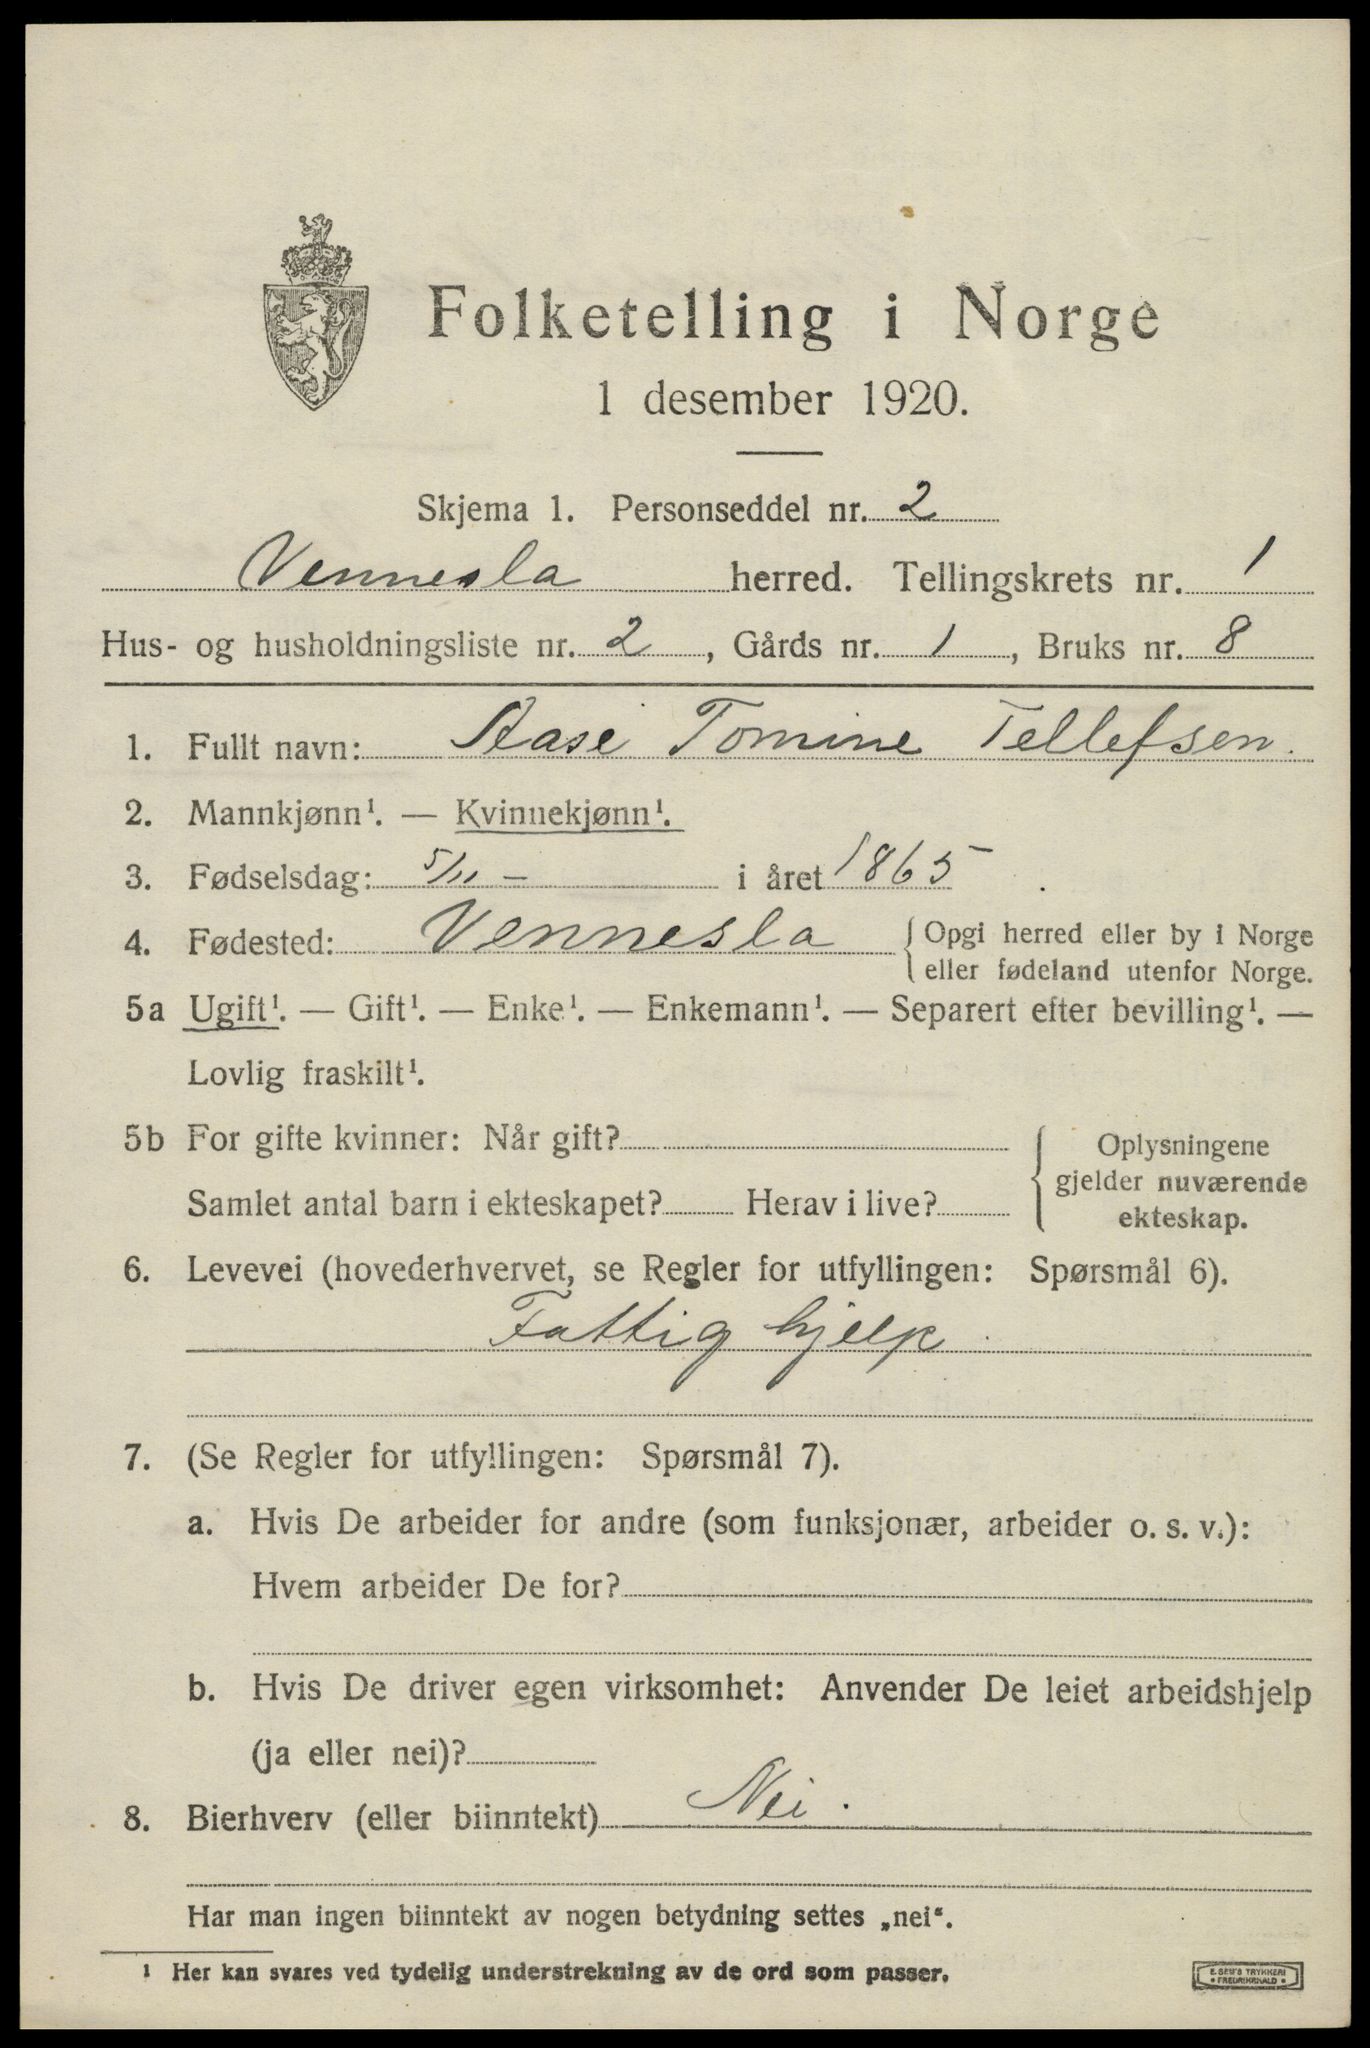 Folketelling i Norge
1 desember 1920.
Skjema 1. Personseddel nr. 2
Vennesla herred. Tellingskrets nr. 1
Hus- og husholdningsliste nr. 2, Gårds nr. 1, Bruks nr. 8
1. Fullt navn: Aase Tomine Tellefsen.
2. Mannkjønn¹. — Kvinnekjønn¹.
3. Fødselsdag: 5/11 - i året 1865
4. Fødested: Vennesla { Opgi herred eller by i Norge
eller fødeland utenfor Norge.
5a Ugift¹. — Gift¹. — Enke¹. — Enkemann¹. — Separert efter bevilling¹. —
Lovlig fraskilt¹.
5b For gifte kvinner: Når gift?
Samlet antal barn i ekteskapet? Herav i live?
{ Oplysningene
gjelder nuværende
ekteskap.
6. Levevei (hovederhvervet, se Regler for utfyllingen: Spørsmål 6).
Fattig hjelp.
7. (Se Regler for utfyllingen: Spørsmål 7).
a. Hvis De arbeider for andre (som funksjonær, arbeider o. s. v.):
Hvem arbeider De for?
b. Hvis De driver egen virksomhet: Anvender De leiet arbeidshjelp
(ja eller nei)?
8. Bierhverv (eller biinntekt) Nei.
Har man ingen biinntekt av nogen betydning settes „nei“.
¹ Her kan svares ved tydelig understrekning av de ord som passer.
E. SEM'S TRYKKERI
• FREDRIKSHALD •